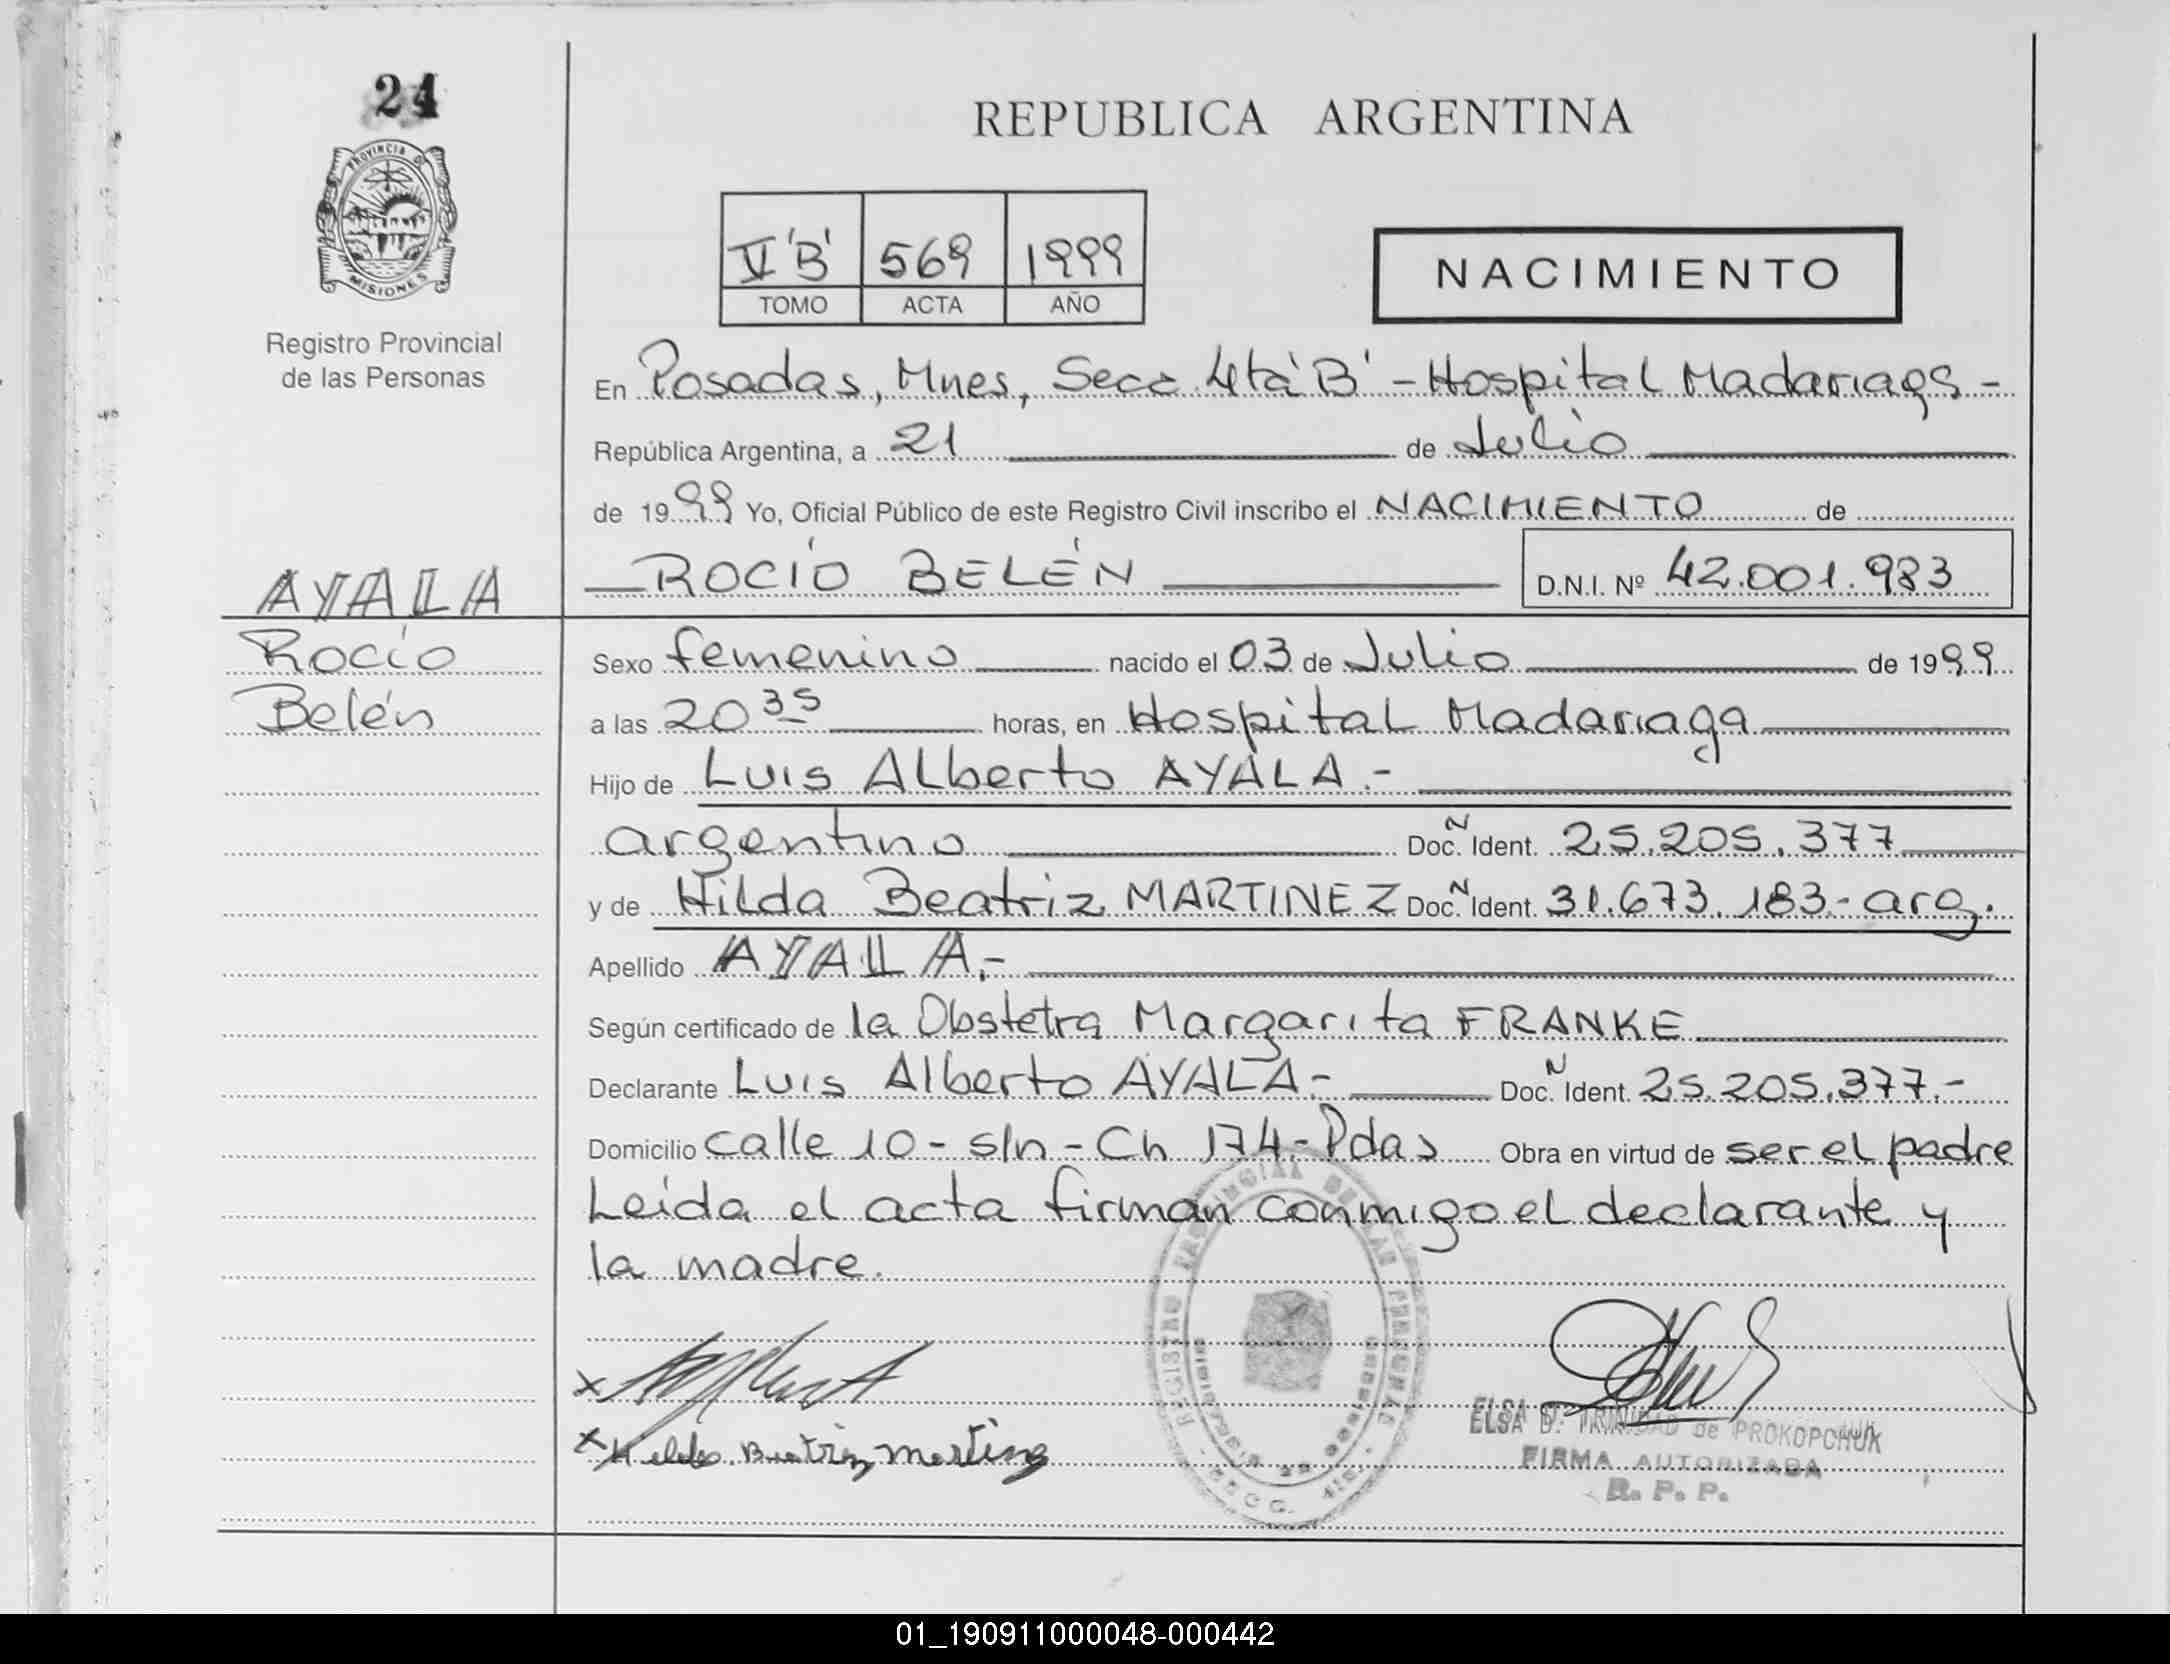 24
PROVINCIA DE
MISIONES
Registro Provincial
de las Personas
AYALA
Rocío
Belén
REPUBLICA ARGENTINA
V 'B' 569 1999
TOMO ACTA AÑO
NACIMIENTO
En Posadas, Mnes, Secc. 4ta 'B' - Hospital Madariaga -
República Argentina, a 21 de Julio
de 1999 Yo, Oficial Público de este Registro Civil inscribo el NACIMIENTO de
ROCÍO BELÉN D.N.I. Nº 42.001.983
Sexo femenino nacido el 03 de Julio de 1999
a las 20 35 horas, en Hospital Madariaga
Hijo de Luis Alberto AYALA.-
argentino Doc. N Ident. 25.205.377
y de Hilda Beatriz MARTINEZ Doc. N Ident. 31.673.183.- arg.
Apellido AYALA.-
Según certificado de la Obstetra Margarita FRANKE
Declarante Luis Alberto AYALA.- Doc. N Ident. 25.205.377.-
Domicilio calle 10 - s/n - Ch 174.- Pdas Obra en virtud de ser el padre
Leida el acta firman conmigo el declarante y
la madre.
x
x Hilda Beatriz Martinez
REGISTRO PROVINCIAL DE LAS PERSONAS
SECC. 4ta.
ELSA D. TRINIDAD de PROKOPCHUK
FIRMA AUTORIZADA
R. P. P.
01_190911000048-000442